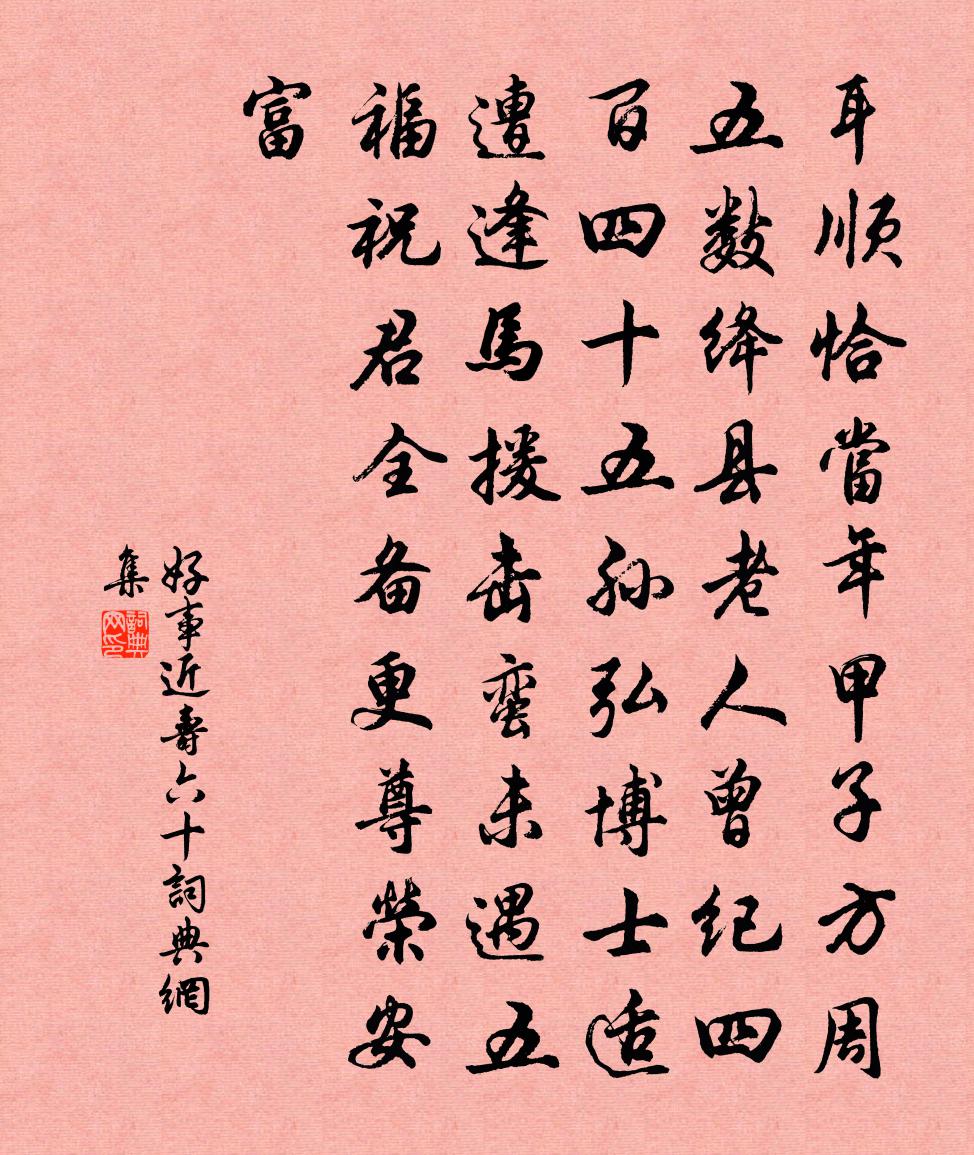 耳順恰當年甲子方周
五數绛县老人曾纪四
百四十五孙弘博士适
遭逢馬援击蛮未遇五
福祝君全备更尊榮安
富
好事近壽六十詞典網
集
詞典网印